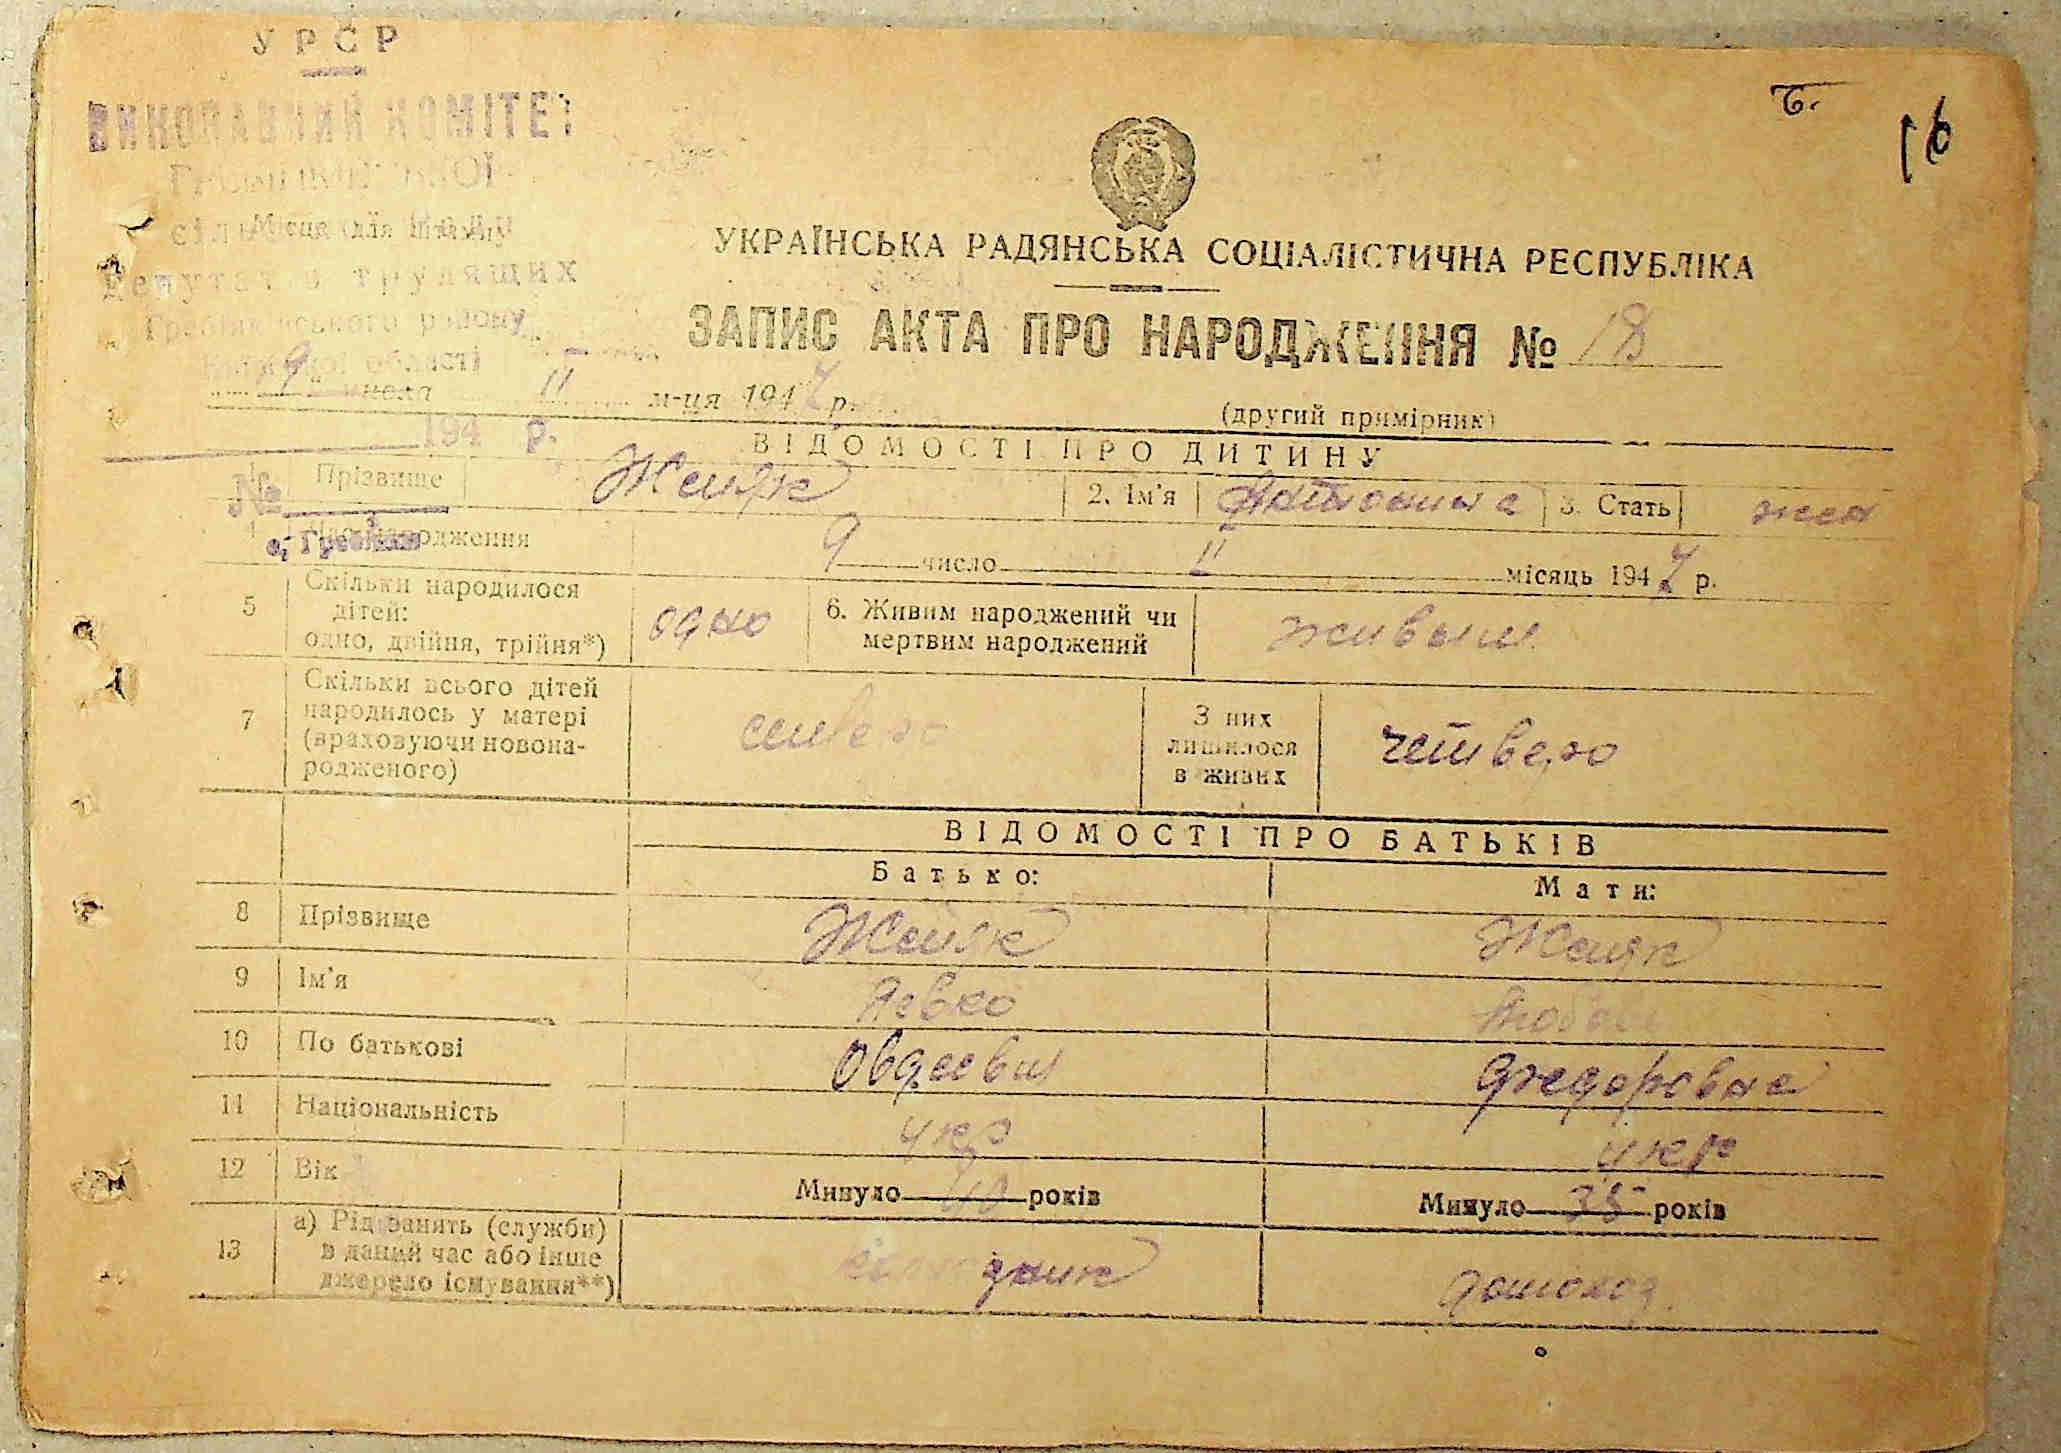 УРСР
ВИКОНАВЧИЙ КОМІТЕТ
Місце для штампу
Депутатів трудящих
Гребінківського району
Київської області
194 р.
№
с. Гребінки
Б.
16
УКРАЇНСЬКА РАДЯНСЬКА СОЦІАЛІСТИЧНА РЕСПУБЛІКА
ЗАПИС АКТА ПРО НАРОДЖЕННЯ № 18
9 числа II м-ця 1947 р.
(другий примірник)
ВІДОМОСТІ ПРО ДИТИНУ
Прізвище 2. Ім'я Антонина 3. Стать жен
4 Час народження 9 число II місяць 1947 р.
5 Скільки народилося дітей: одно, двійня, трійня*) одно 6. Живим народжений чи мертвим народжений живым
7 Скільки всього дітей народилось у матері (враховуючи новонародженого) семеро З них лишилося в живих четверо
ВІДОМОСТІ ПРО БАТЬКІВ
Батько: Мати:
8 Прізвище
9 Ім'я Левко Любовь
10 По батькові Овдеевич Федоровна
11 Національність укр укр
12 Вік Минуло 40 років Минуло 35 років
13 а) Рід занять (служби) в даний час або інше джерело існування**) колгоспник домохоз.